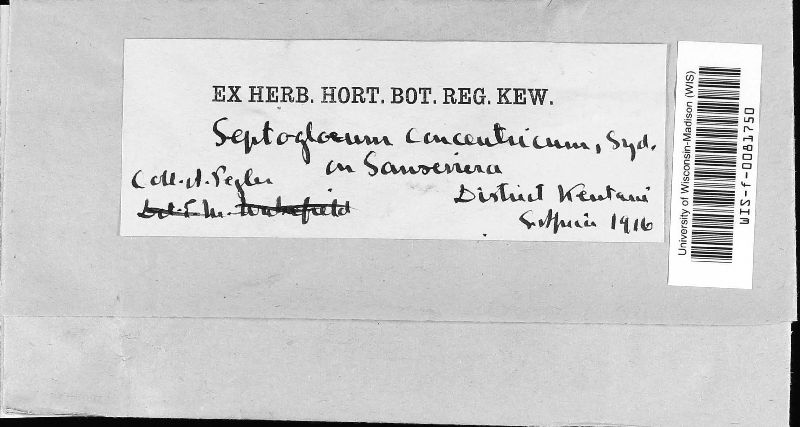 EX HERB. HORT. BOT. REG. KEW.
Septogloeum concentricum, Syd.
on Sanseviera
Coll. A. Pegler
District Kentani
Det. E. M. Wakefield
S. Africa 1916
University of Wisconsin-Madison (WIS)
WIS-f-0081750